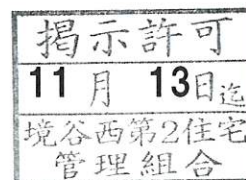 掲示許可
11月 13日迄
境谷西第2住宅
管理組合